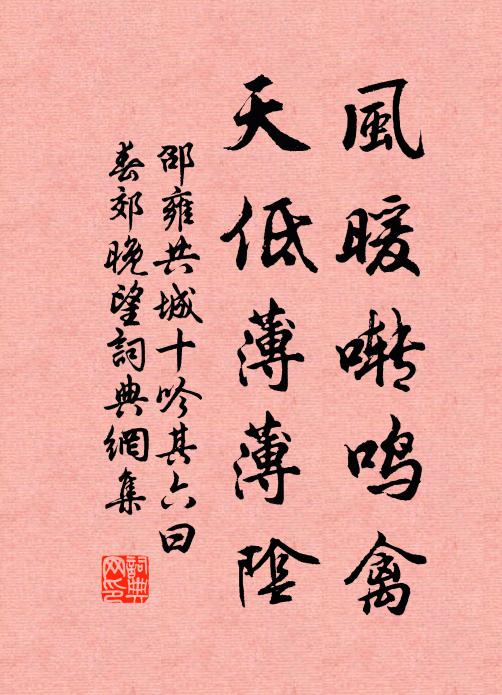 風暖囀鸣禽
天低薄薄陰
邵雍共城十吟其六曰
春郊晚望詞典網集
詞典
网印